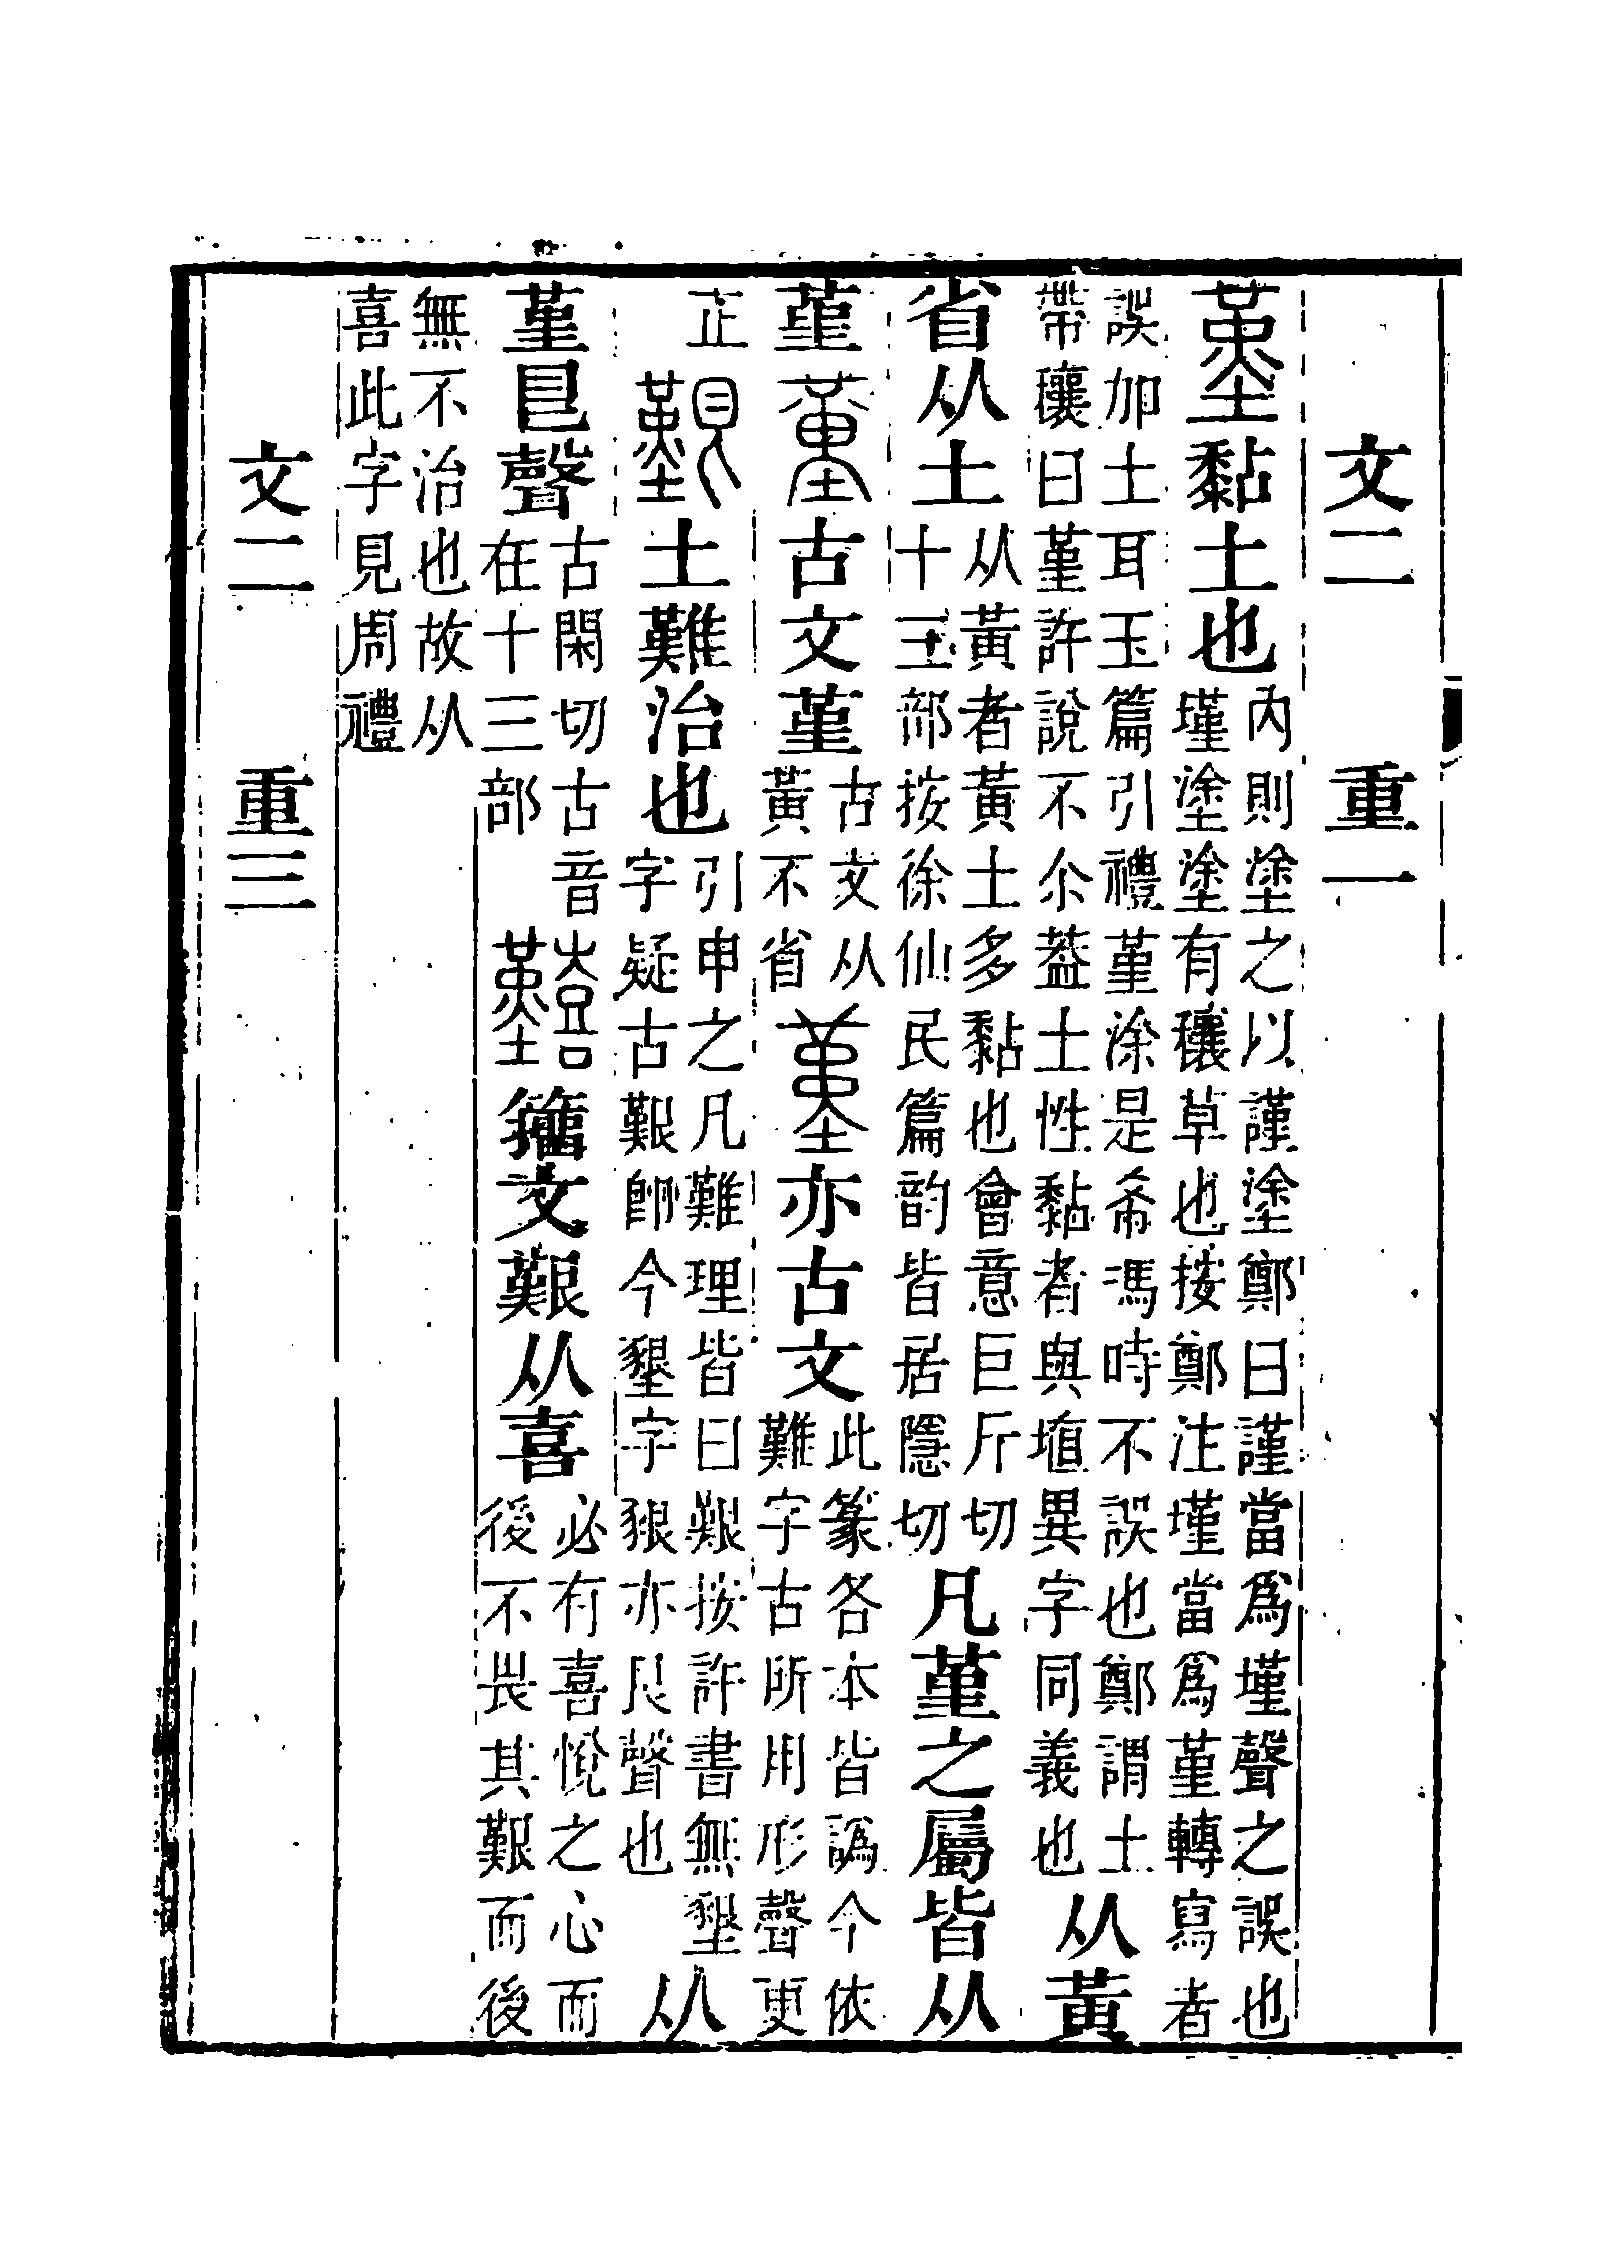 文二　重一
堇黏土也內則塗之以謹塗鄭曰謹當爲墐聲之誤也墐塗塗有穰草也按鄭注墐當爲堇轉寫者
誤加土耳玉篇引禮堇涂是希馮時不誤也鄭謂土帶穰曰堇許說不尒葢土性黏者與埴異字同義也从黃
省从土从黃者黃土多黏也會意巨斤切十三部按徐仙民篇韵皆居隱切凡堇之屬皆从
堇𡏳古文堇古文从黃不省𦰶亦古文此篆各本皆譌今依難字古所用形聲更
正艱土難治也引申之凡難理皆曰艱按許書無墾字疑古艱卽今墾字豤亦艮聲也从
堇艮聲古閑切古音在十三部囏籒文艱从喜必有喜悅之心而後不畏其艱而後
無不治也故从喜此字見周禮
文二　重三